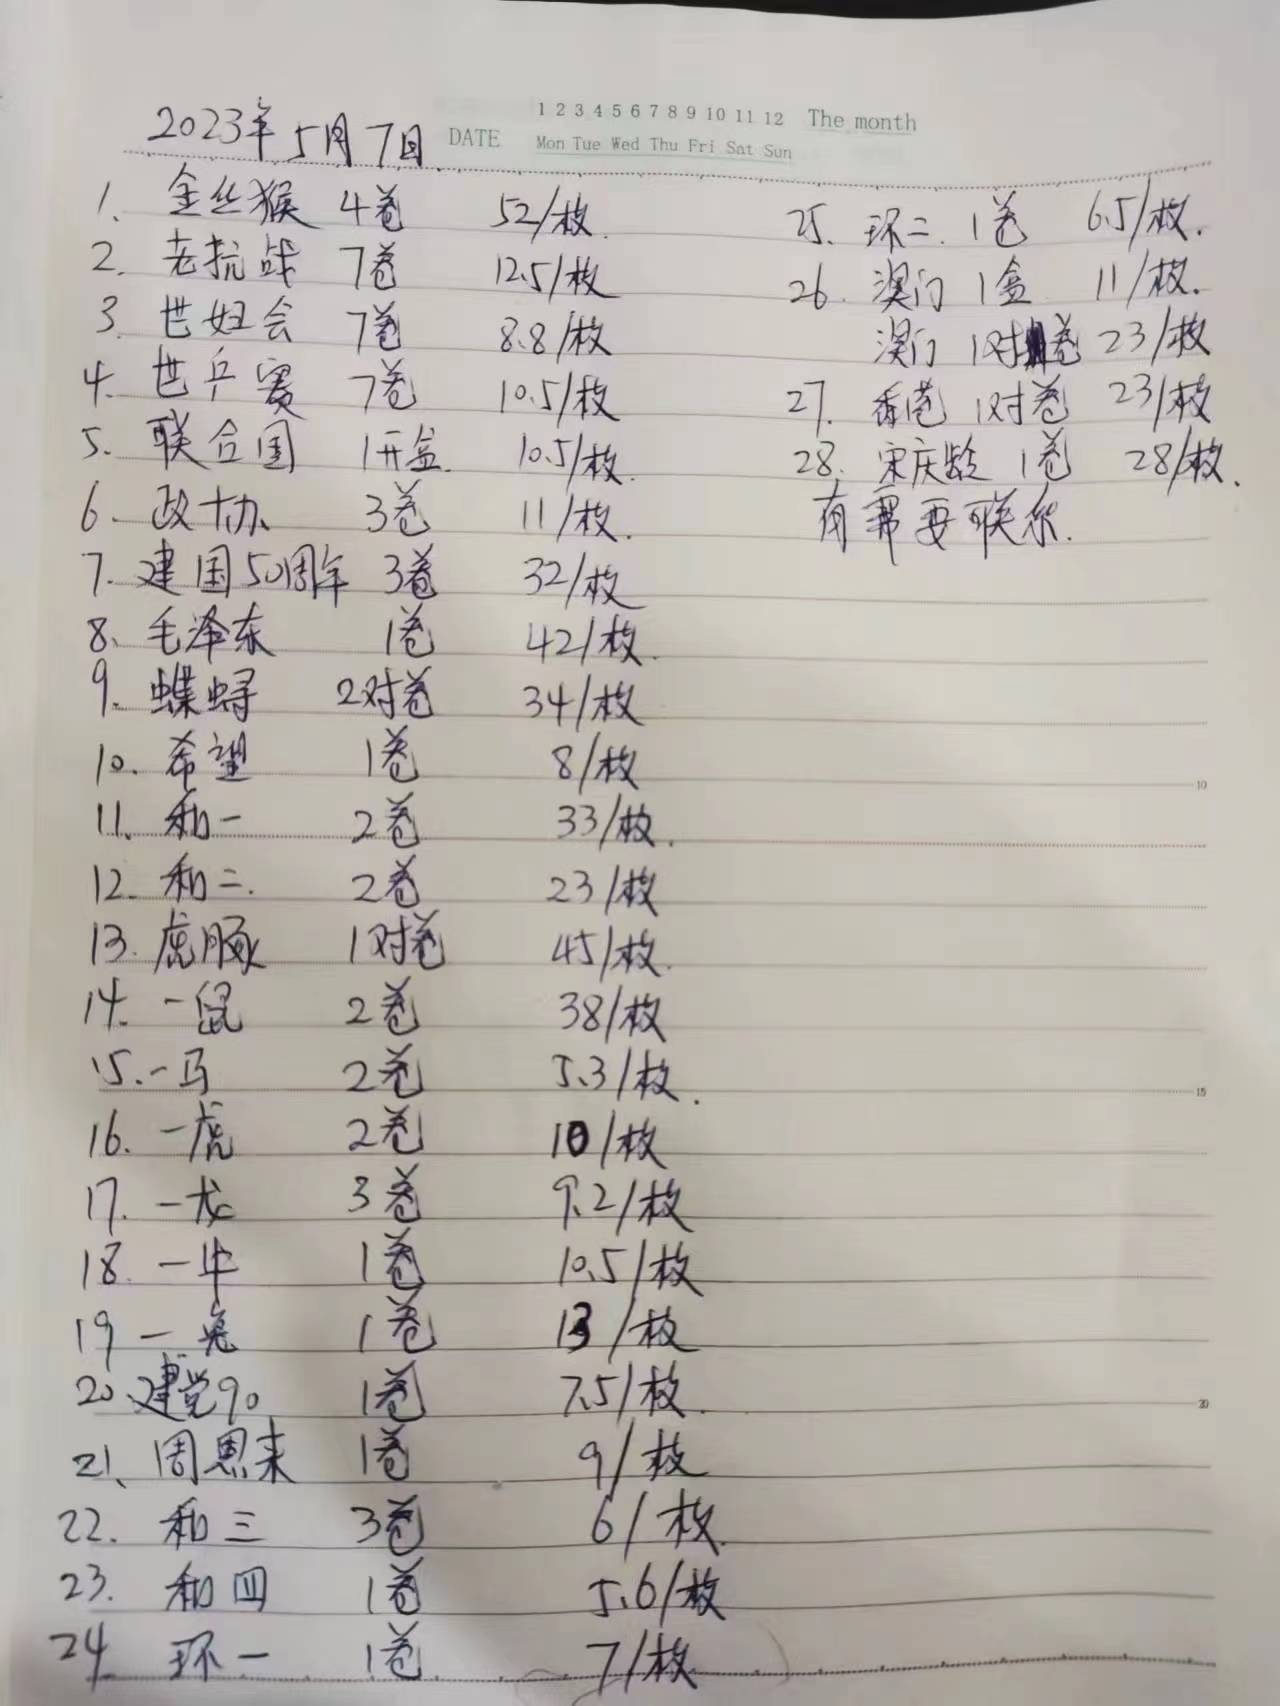 1 2 3 4 5 6 7 8 9 10 11 12 The month
DATE Mon Tue Wed Thu Fri Sat Sun
2023年5月7日
1、金丝猴 4卷 52/枚.
2. 老抗战 7卷 12.5/枚
3. 世妇会 7卷 8.8/枚
4. 世乒赛 7卷 10.5/枚
5. 联合国 1开盒 10.5/枚.
6. 政协 3卷 11/枚.
7. 建国50周年 3卷 32/枚
8、毛泽东 1卷 42/枚.
9. 蝶蝉 2对卷 34/枚
10. 希望 1卷 8/枚
11. 和一 2卷 33/枚.
12. 和二. 2卷 23/枚
13. 虎豚 1对卷 45/枚.
14. 一鼠 2卷 38/枚
15. 一马 2卷 5.3/枚.
16. 一虎 2卷 10/枚
17. 一龙 3卷 9.2/枚
18. 一牛 1卷 10.5/枚
19 一兔 1卷 13/枚
20、建党90 1卷 7.5/枚.
21、周恩来 1卷 9/枚
22. 和三 3卷 6/枚.
23. 和四 1卷 5.6/枚
24 环一 1卷 7/枚
25. 环二. 1卷 6.5/枚.
26. 澳门 1盒 11/枚.
澳门 1对卷 23/枚
27. 香港 1对卷 23/枚
28. 宋庆龄 1卷 28/枚.
有需要联系.
10
15
20